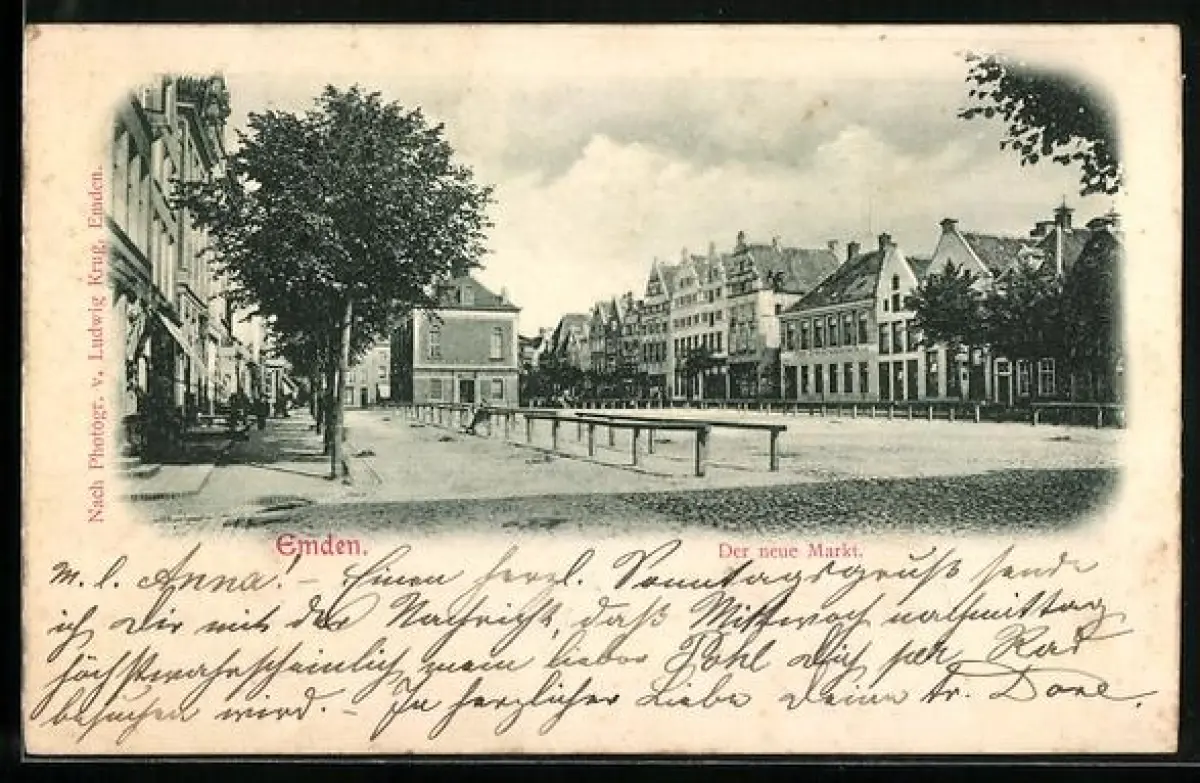 Nach Photogr. v. Ludwig Krug, Emden.
Emden.
Der neue Markt.
M. l. Anna! – Einen herzl. Sonntagsgruß sende
ich Dir mit der Nachricht, daß Mittwoch nachmittag
höchstwahrscheinlich mein lieber Pohl Dich per Rad
besuchen wird. – In herzlicher Liebe Deine tr. Dore.